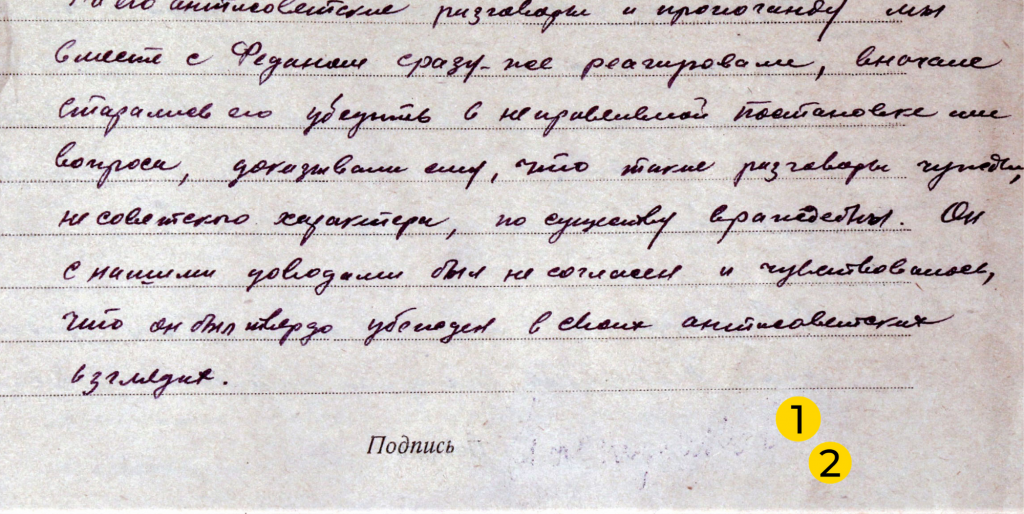 На его антисоветские разговоры и пропоганду мы
вместе с Феданом сразу-же реагировали, вначале
старались его убедить в неправильной постановке им
вопроса, доказывали ему, что такие разговоры чужды,
не советского характера, по существу враждебны. Он
с нашими доводами был не согласен и чувствовалось,
что он был твердо убежден в своих антисоветских
взглядах.
Подпись
1
2